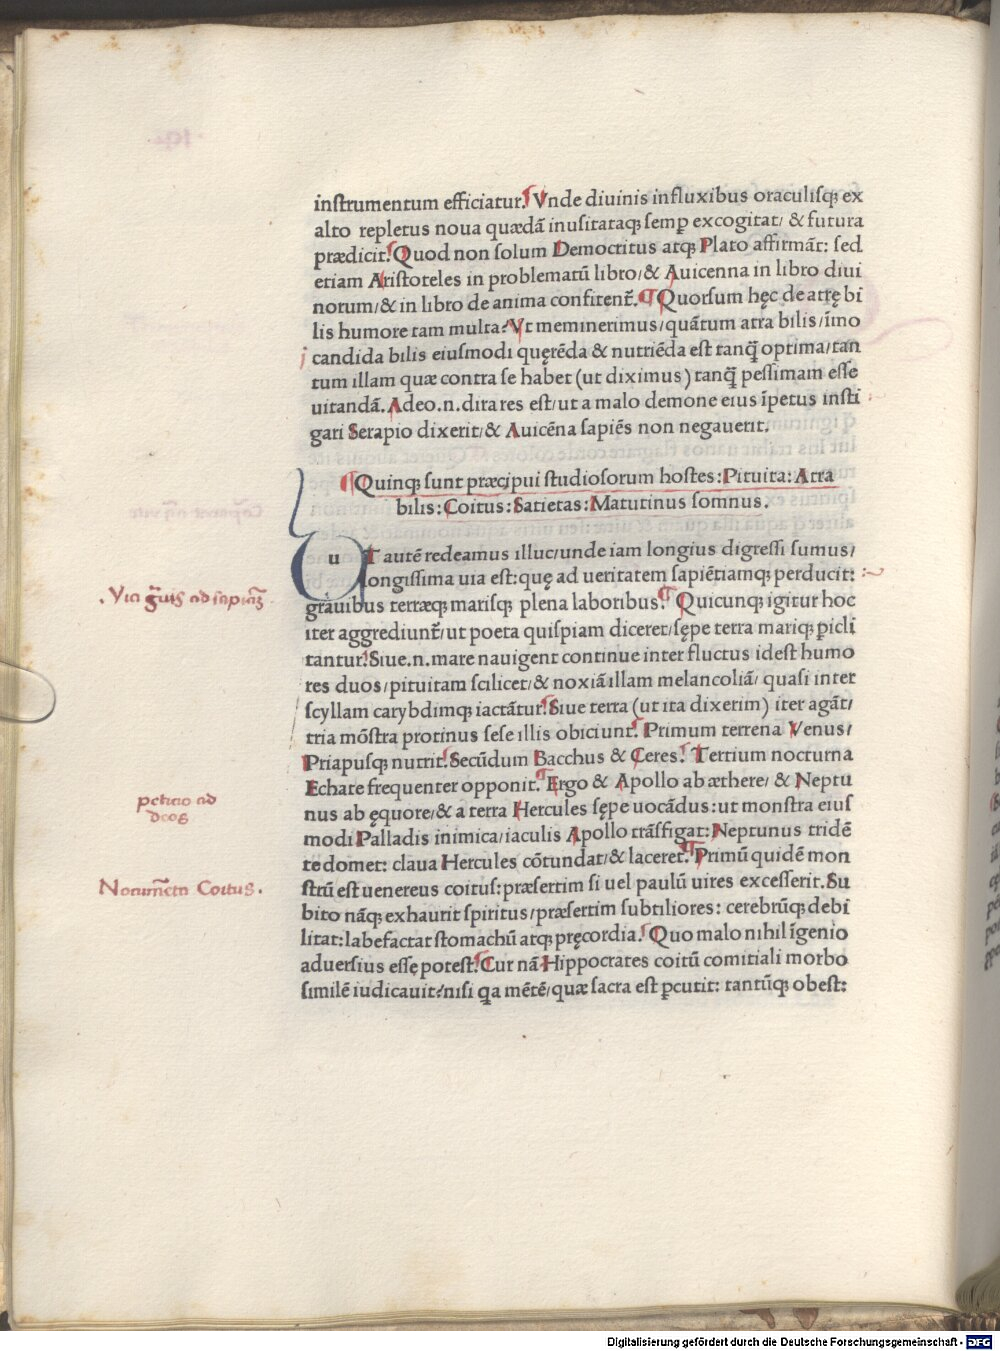 inſtrumentum efficiatur. Vnde diuinis influxibus oraculiſq; ex
alto repletus noua quædā inuſitataq; ſemp excogitat/ & futura
prædicit. Quod non ſolum Democritus atq; Plato affirmāt: ſed
etiam Ariſtoteles in problematū libro/& Auicenna in libro diui
norum/& in libro de anima confitent̃. Quorſum hęc de atrę bi
lis humore tam multa? Vt meminerimus/quātum atra bilis/īmo
candida bilis eiuſmodi quęrēda & nutriēda eſt tanq̃ optima/tan
tum illam quæ contra ſe habet (ut diximus) tanq̃ peſſimam eſſe
uitandā. Adeo.n.dira res eſt/ut a malo demone eius īpetus inſti
gari Serapio dixerit/& Auicēna ſapiēs non negauerit.
Quinq; ſunt præcipui ſtudioſorum hoſtes: Pituita: Atra
bilis: Coitus: Satietas: Matutinus ſomnus.
uT autē redeamus illuc/unde iam longius digreſſi ſumus/
longiſſima uia eſt: quę ad ueritatem ſapiētiamq; perducit:
. Via g̃uis ad sapiēt̃ .
grauibus terræq; mariſq; plena laboribus. Quicunq; igitur hoc
iter aggrediunt̃/ut poeta quiſpiam diceret/ſępe terra mariq; ꝑicli
tantur. Siue.n.mare nauigent continue inter fluctus ideſt humo
res duos/pituitam ſcilicet/& noxiā illam melancoliā/ quaſi inter
ſcyllam carybdimq; iactātur. Siue terra (ut ita dixerim) iter agāt/
tria mōſtra protinus ſeſe illis obiciunt. Primum terrena Venus/
Priapuſq; nutrit. Secūdum Bacchus & Ceres. Tertium nocturna
Echate frequenter opponit. Ergo & Apollo ab æthere/ & Neptu
petitio ad
deos
nus ab ęquore/& a terra Hercules ſępe uocādus: ut monſtra eiuſ
modi Palladis inimica/iaculis Apollo trāſfigat: Neptunus tridē
te domet: claua Hercules cōtundat/& laceret. Primū quidē mon
Nocum̃eta Coitus .
ſtrū eſt uenereus coitus: præſertim ſi uel paulū uires exceſſerit. Su
bito nāq; exhaurit ſpiritus/præſertim ſubtiliores: cerebrūq; debi
litat: labefactat ſtomachū atq; pręcordia. Quo malo nihil īgenio
aduerſius eſſę poteſt. Cur nā Hippocrates coitū comitiali morbo
ſimilē iudicauit? niſi q̃a mētē/quæ ſacra eſt ꝑcutit: tantūq; obeſt:
Digitalisierung gefördert durch die Deutsche Forschungsgemeinschaft - DFG